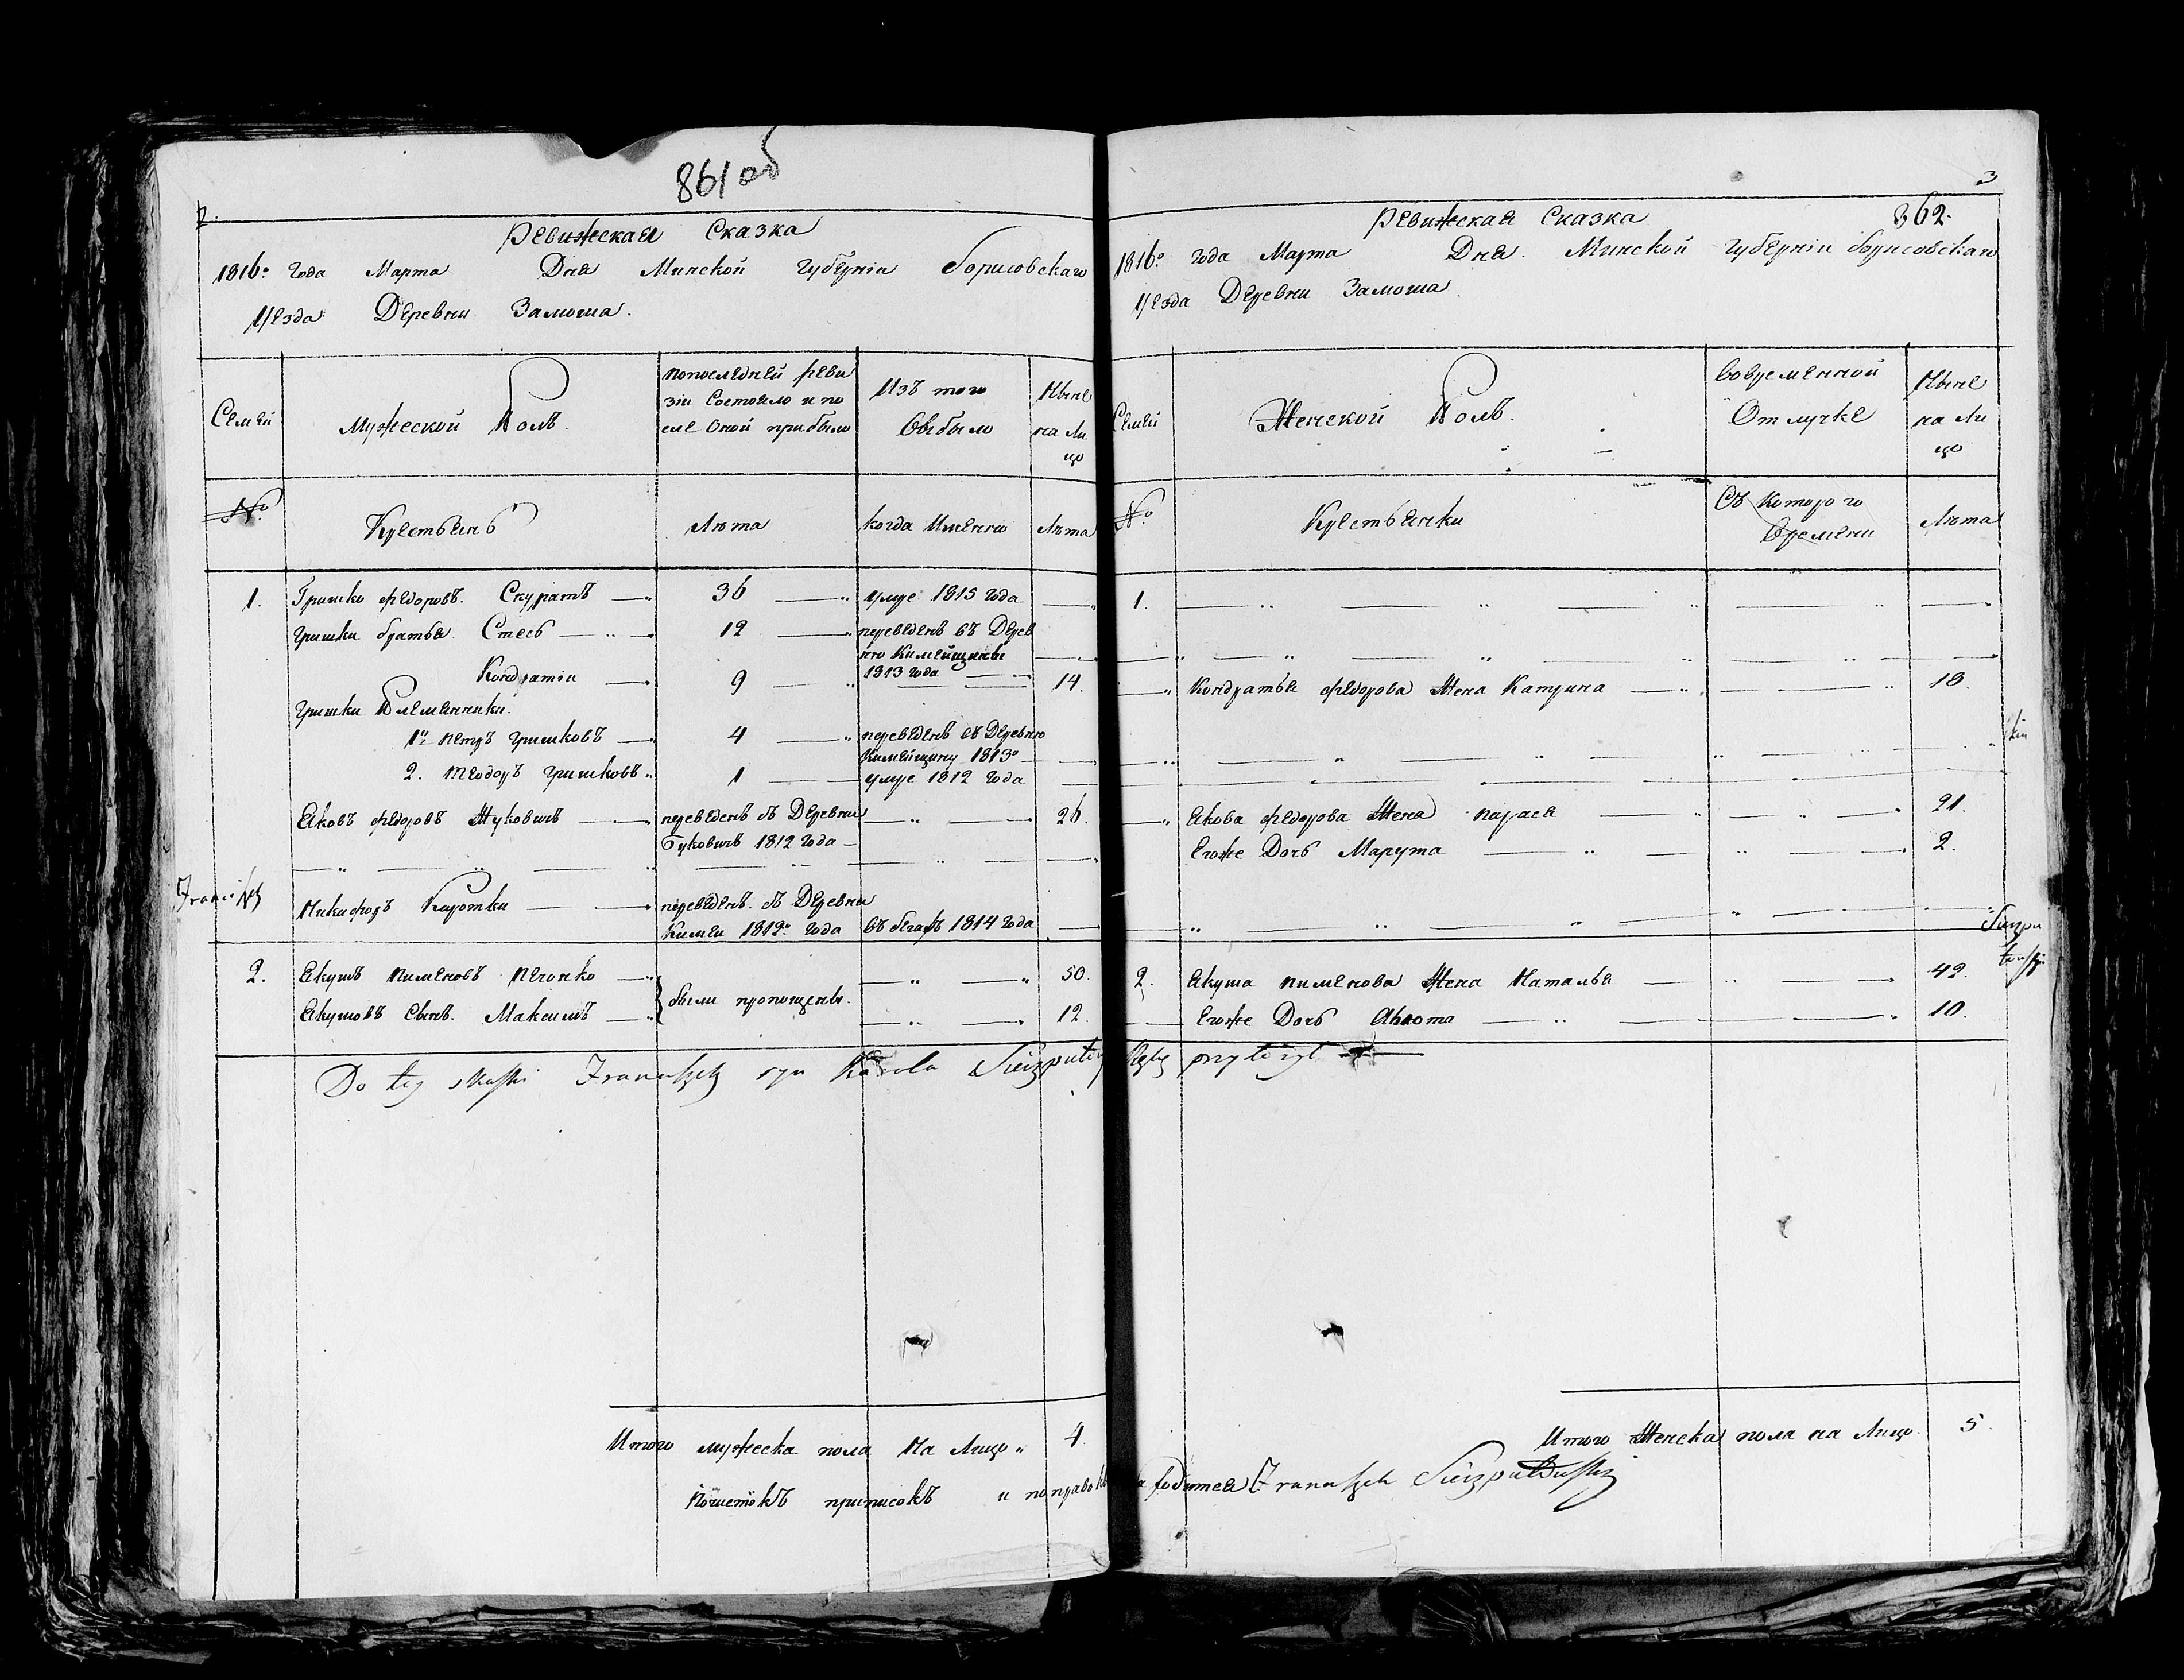 861 об
2.
Ревижская Сказка
1816º года Марта Дня Минской Губерніи Борисовскаго
Уезда Деревни Замоша.
Семьи
Мужеской Полъ.
попоследней реви
зіи Состояло и по
сле Оной прибыло
Изъ того
Выбыло
Ныне
на Ли
цо
№
Крестьянъ
Лѣта
когда Имянно
Лѣта
1. Гришко Федоровъ. Скуратъ 36 умре 1815 года
Гришки братья. Стесь 12 переведенъ въ Дерев
ню Кимейщины
1813 года
Кондратіи 9 14.
Гришки Племянники.
1й Петръ Гришковъ 4 переведенъ въ Деревню
Кимейщину 1813º
2. Теодоръ Гришковъ 1 умре 1812 года
Яковъ Федоровъ Жуковичъ переведенъ съ Деревни 26.
Буковичъ 1812 года
Никифоръ Коротки переведенъ. съ Деревни
Кимеи 1812º года въ бегахъ 1814 года
2. Якушъ Пименовъ 50.
были пропощены.
Якушовъ Сынъ. Максимъ 12.
Do tey skaski Franciszek syn Karola
Итого мужеска пола На Лицо 4.
Почистокъ приписокъ и поправокъ
3
362.
Ревижская Сказка
1816º года Марта Дня. Минской Губерніи Борисовскаго
Уезда Деревни Замоша
Семьи
Женской Полъ.
Вовременной
Отлучке
Ныне
на Ли
цо
№
Крестьянки
Съ Которого
Времяни
Лѣта
1.
Кондратья Федорова Жена Катрина 18.
Якова Федорова Жена Парася 21.
Егоже Дочь Марута 2.
2. Якуша Пименова Жена Наталья 42.
Егоже Дочь 10.
Итого Женска пола на Лицо. 5.
Franciszek